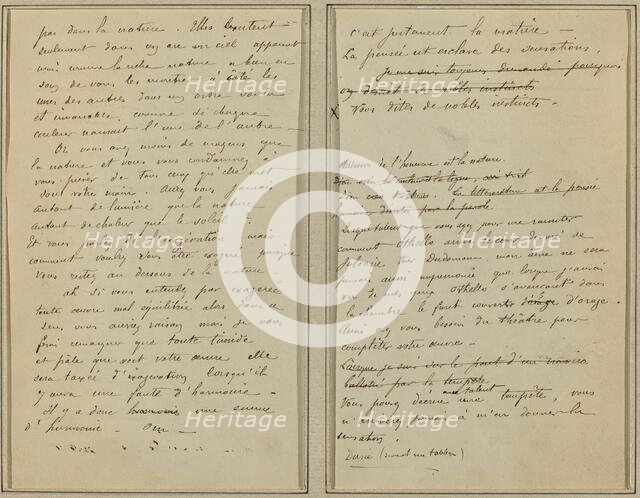 pas dans la nature. Elles existent
seulement dans un arc en ciel apparent
mais comme la riche nature a bien eu
soin de vous les montrer à côté les
unes des autres dans un ordre voulu
et immuable comme si chaque
couleur naissait l'une de l'autre —
Or vous avez moins de moyens que
la nature et vous vous condamnez à
vous priver de tous ceux qu'elle met
sous votre main. Aurez vous jamais
autant de lumière que la nature
autant de chaleur que le soleil ?
Et vous parlez d'exagération mais
comment voulez vous être exagéré puisque
vous restez au dessous de la nature
ah si vous entendez par exagérée
toute œuvre mal équilibrée alors dans ce
sens vous aurez raison mais je vous
ferai remarquer que toute timide
et pâle que soit votre œuvre elle
sera taxée d'exagération lorsqu'il
y aura une faute d'harmonie —
Il y a donc harmonie une science
d'harmonie — Oui —
c'est justement la matière
La pensée est esclave des sensations.
Je me suis toujours demandé pourquoi
on disait de nobles instincts
X Vous dites de nobles instincts.
de l'homme est la nature.
La littérature est la pensée
humaine décrite par la parole
Quelque talent que vous ayez pour me raconter
comment Othello arrive le cœur dévoré de
jalousie tuer Desdémone mon âme ne sera
jamais aussi impressionnée que lorsque j'aurais
vu de mes yeux Othello s'avançant dans
la chambre le front couvert d'orage d'orage.
Aussi avez vous besoin du théâtre pour
compléter votre œuvre —
Lorsque je suis sur le pont d'un navire
balloté par la tempête
talent
Vous pouvez décrire une tempête, vous
n'arriverez jamais à m'en donner la
sensation.
Heritage
Heritage
Heritage
Heritage
Heritage
Heritage
Heritage
Heritage